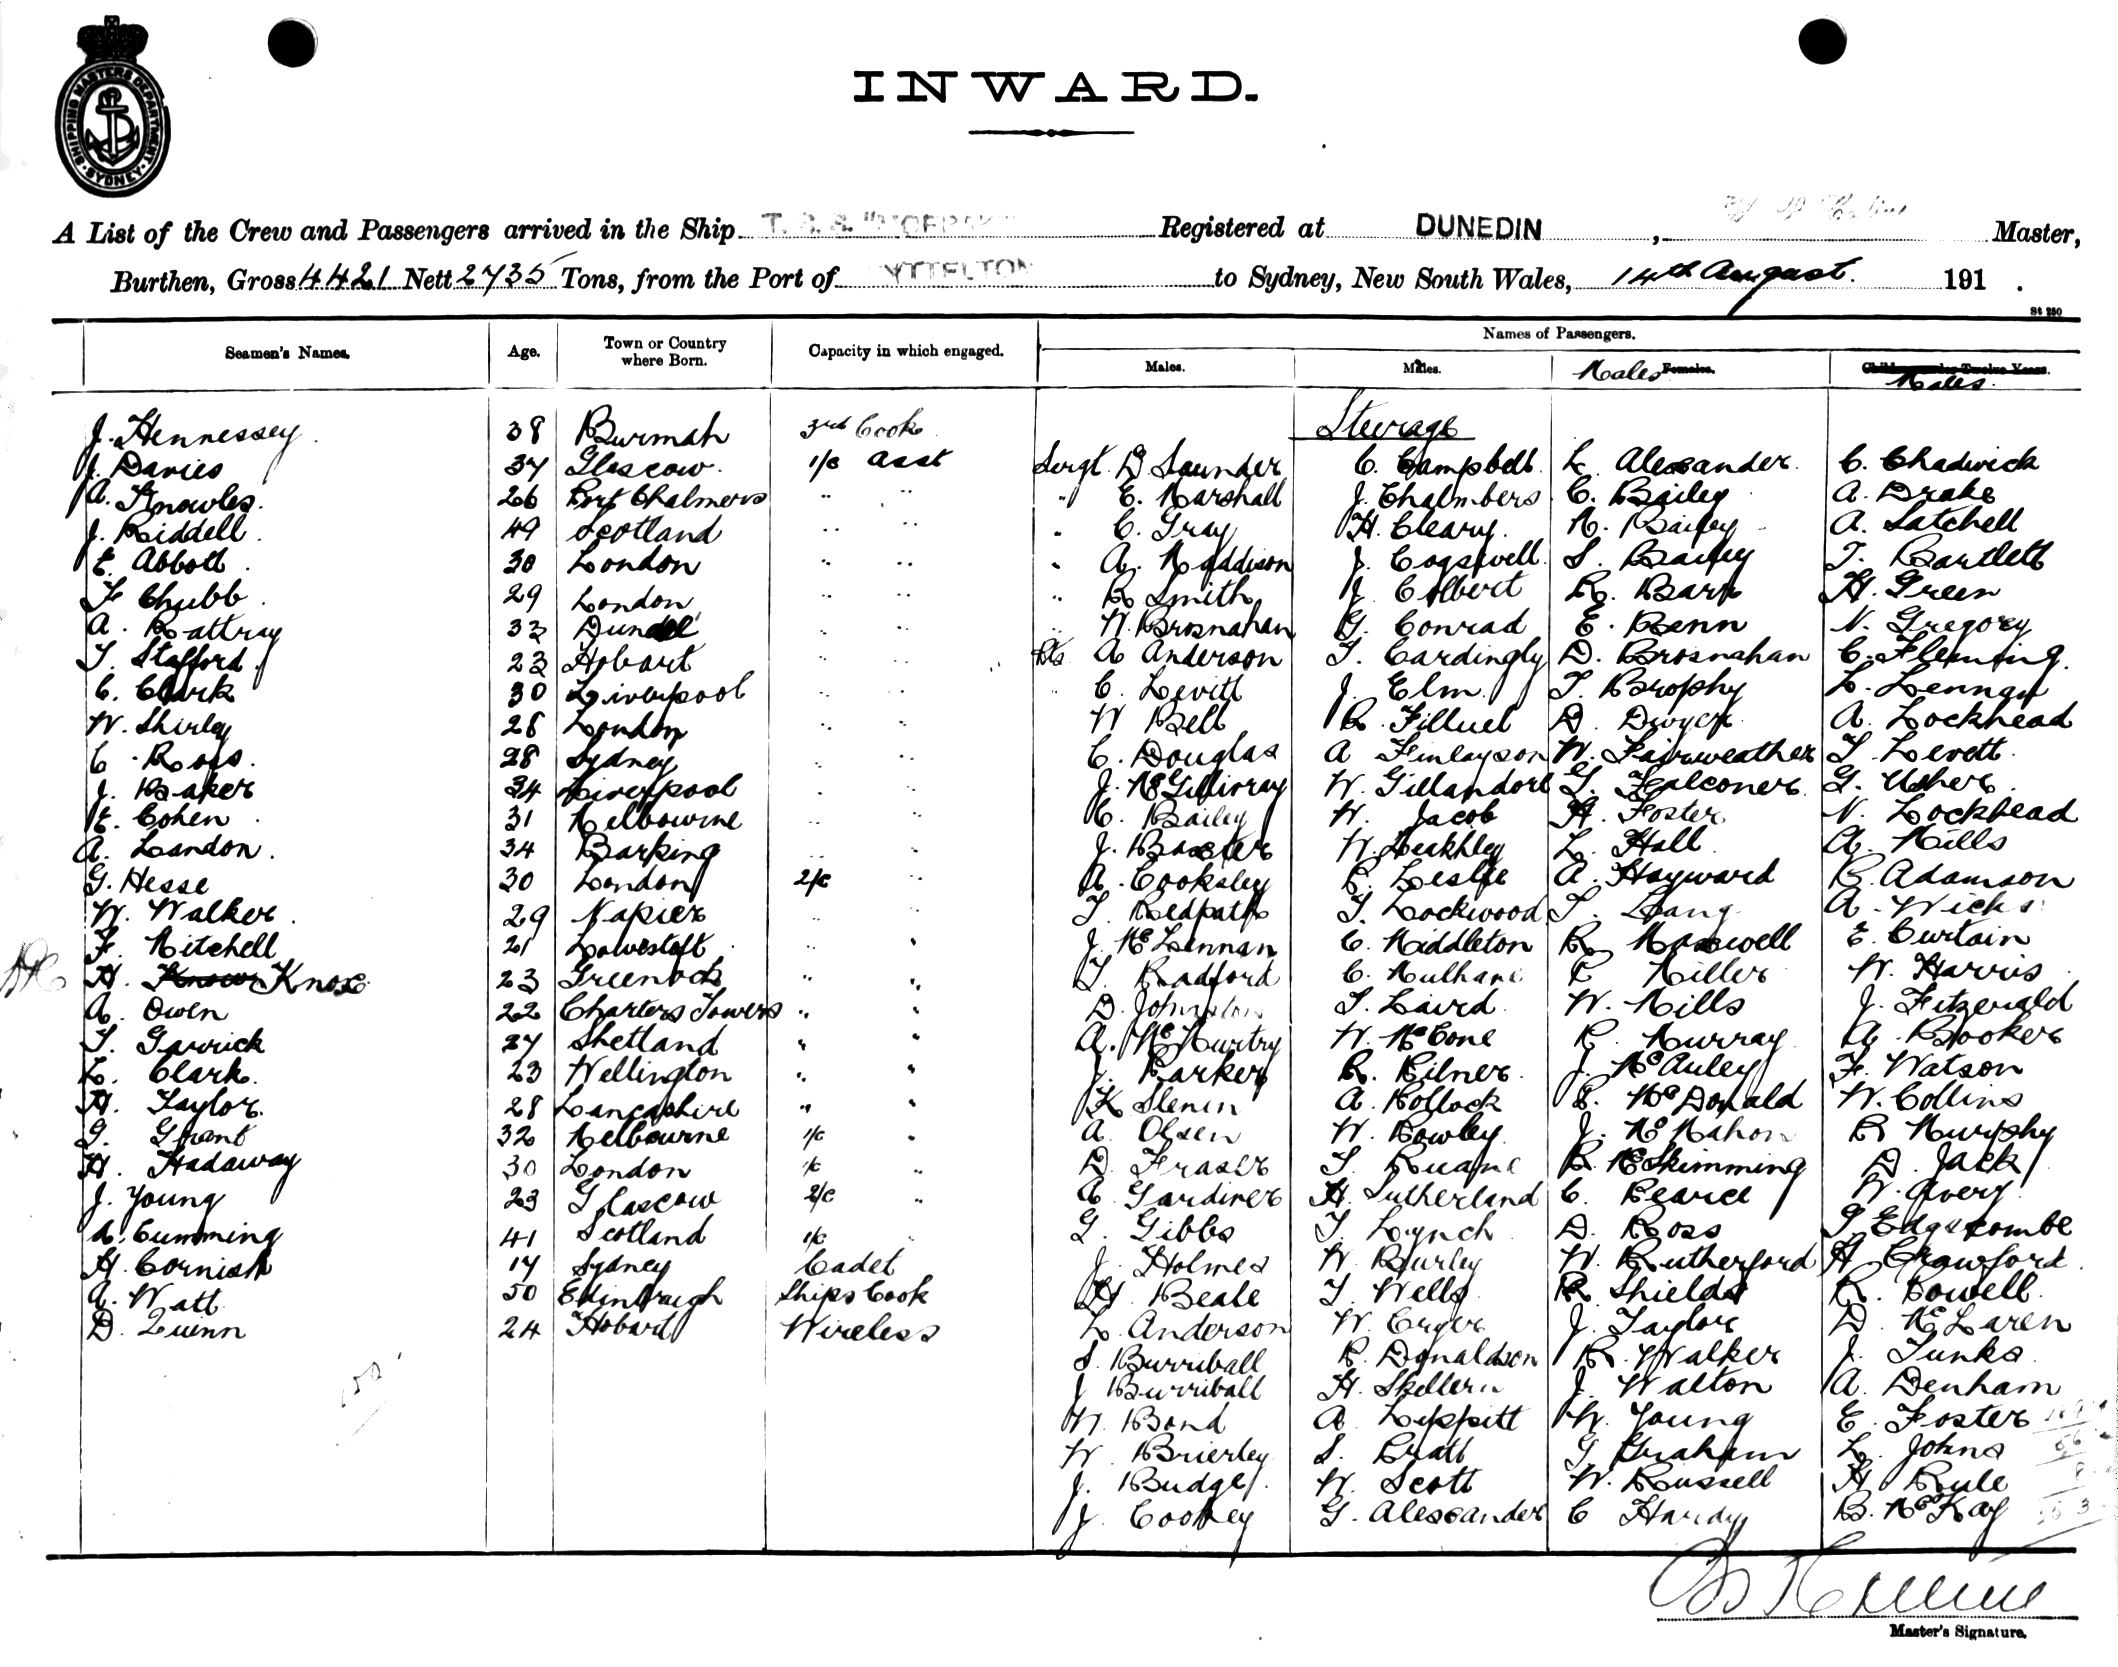 SHIPPING MASTERS DEPARTMENT
SYDNEY
INWARD.
A List of the Crew and Passengers arrived in the Ship T.S.S. Registered at DUNEDIN, Master,
Burthen, Gross 4421 Nett 2735 Tons, from the Port of LYTTELTON to Sydney, New South Wales, 14th August. 191 .
St 250
Seamen's Names. Age. Town or Country where Born. Capacity in which engaged. Names of Passengers.
Males. Males. Males Females. Children under Twelve Years. Males.
Steerage
J. Hennessey 38 Burmah 3rd Cook
J. Davies 37 Glascow. 1/c Asst Sergt D Saunder C. Campbell L. Alexander C. Chadwick
A. Knowles. 26 Port Chalmers " " " E. Marshall J. Chalmbers C. Bailey A. Drake
J. Riddell 49 Scotland " " " C. Gray H. Cleary. M. Bailey A. Satchell
E. Abbott 30 London " " " A. Maddison J. Cogswell S. Bailey T. Bartlett
F. Chubb 29 London " " " R Smith J. Colbert R. Barr H. Green
A. Rattray 33 Dundee " " " W. Brosnahan G. Conrad E. Benn N. Gregory
T. Stafford. 23 Hobart " " Pts A Anderson T. Cardingly D. Brosnahan C. Fleming.
C. Clark 30 Liverpool " " " C. Levitt J. Elm. T. Brophy L. Lennan
W. Shirley 28 London " " W Bell R. Filluel D. Dwyer A. Lockhead
C. Ross. 28 Sydney " " C. Douglas A Finlayson W. Fairweather T. Levett.
J. Baker 34 Liverpool " " J. McGillivray W. Gillandorl G. Falconer G. Usher
E. Cohen 31 Melbourne " " C. Bailey W. Jacob H. Foster N. Lockhead
A. Landon. 34 Barking " " J. Baxter W. Leakhley L. Hall A. Mills
G. Hesse 30 London 2/c " A. Cooksley R. Leslie A. Hayward R. Adamson
W. Walker. 29 Napier " " T. Redpath T. Lockwood T. Lang A. Wicks
F. Mitchell 21 Lowestoft " " J. McLennan C. Middleton R. Maxwell E. Curtain
H. Knox 23 Greenock " " T. Radford C. Mulhane Miller W. Harris
A. Owen 22 Charters Towers " " D. Johnston T. Laird. W. Mills J. Fitzgerald
T. Garrick 27 Shetland " " A. McMurtry W. McCone R. Murray A. Booker
L. Clark. 23 Wellington " " J. Parker R. Milner. J. McAuley F. Watson
H. Taylor. 28 Lancashire " " K Slenin A. Pollock McDonald W. Collins
G. Grant 32 Melbourne 1/c " A. Olsen W. Rowley. J. McMahon R Murphy
H. Hadaway 30 London 1/c " D. Fraser T. Ruane R. McSkimming D. Jack
J. Young 23 Glascow 2/c " A. Gardiner H. Sutherland C. Pearce W. Avery
A. Cumming 41 Scotland 1/c " G. Gibbs T. Lynch D. Ross G Edgscombe
H. Cornish 17 Sydney Cadet J. Holmes W. Burley W. Rutherford H Crawford.
A. Watt 50 Edinbrugh Ships Cook H. Beale T. Wells R. Shields R. Powell.
D. Quinn 24 Hobart Wireless L. Anderson W. J. Taylor D. McLaren
S. Burriball R. Donaldson R. Walker J. Junks
J Burriball H. Skellern J. Walton A. Denham
W. Bond A. Lippitt W. Young E. Foster
W. Brierley S. Pratt G Graham L. Johns
J. Budge. W. Scott W. Russell H Rule
J. Cooney G. Alexander C Hardy B. McKay
Master's Signature.